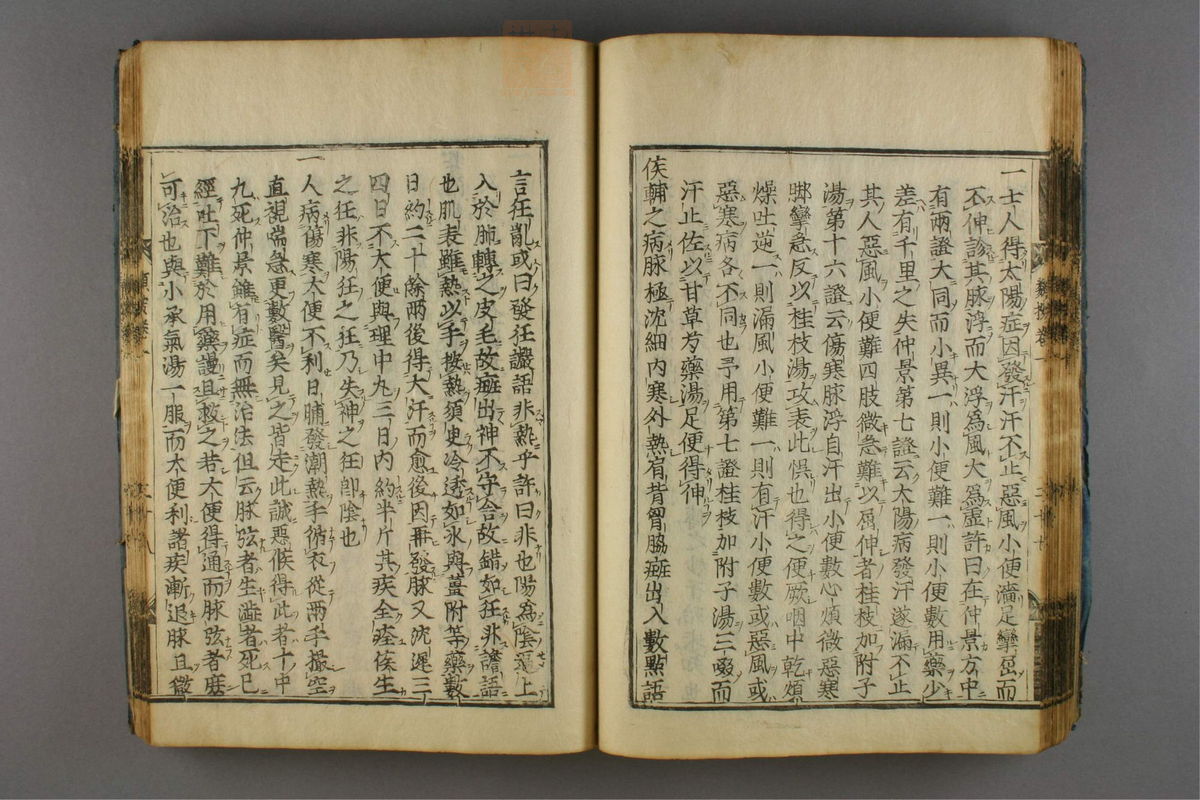 一士人得太陽症因發汗汗不止惡風小便濇足攣急而
不伸診其脉浮而大浮為風大為虛許曰在仲景方中
有兩證大同而小異一則小便難一則小便數用藥少
差有千里之失仲景第七證云太陽病發汗遂漏不止
其人惡風小便難四肢微急難以屈伸者桂枝加附子
湯第十六證云傷寒脉浮自汗出小便數心煩微惡寒
脚攣急反以桂枝湯攻表此悞也得之便厥咽中乾煩
燥吐逆一則漏風小便難一則有汗小便數或惡風或
惡寒病各不同也予用第七證桂枝加附子湯三啜而
汗止佐以甘草芍藥湯足便得伸
侯輔之病脉極沈細內寒外熱肩背胷脇斑出入數點語
言狂亂或曰發狂讝語非熱乎許曰非也陽為陰逼上
入於肺轉之皮毛故斑出神不守舍故錯如狂非譫語
也肌表雖熱以手按熱須臾冷透如氷與薑附等藥數
日約二十餘兩後得大汗而愈後因再發脉又沈遲三
四日不大便與理中丸三日內約半斤其疾全痊侯生
之狂非陽狂之狂乃失神之狂卽陰也
一
人病傷寒大便不利日晡發潮熱手循衣從兩手撮空
直視喘急更數醫矣見之皆走此誠惡候得此者十中
九死仲景雖有症而無治法但云脉弦者生濇者死已
經吐下難於用藥謾且救之若大便得通而脉弦者庶
可治也與小承氣湯一服而大便利諸疾漸退脉且微